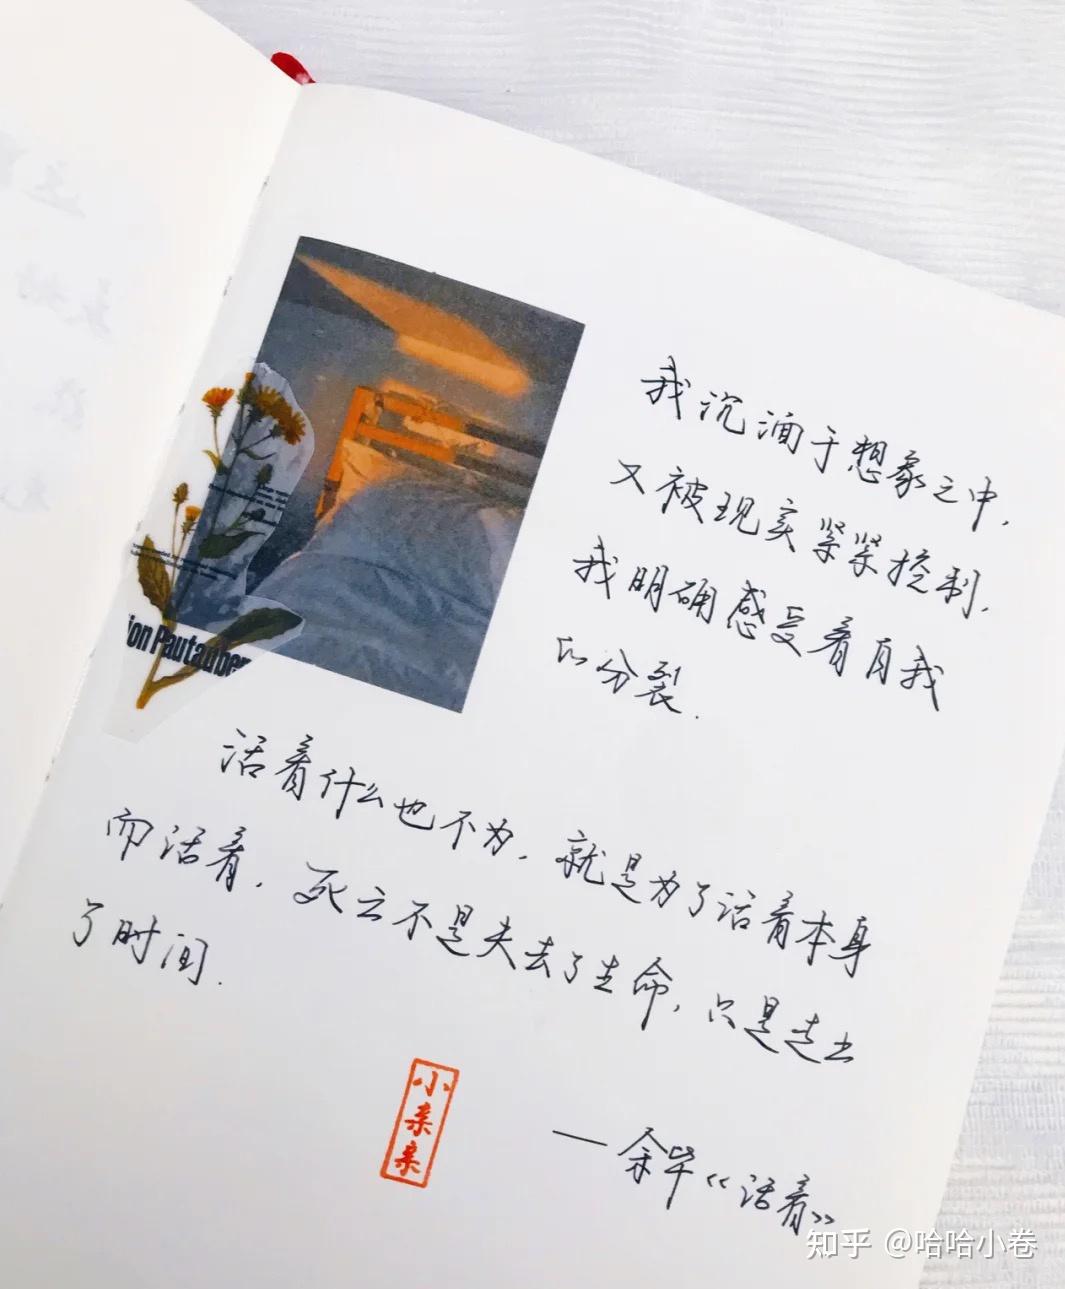 我沉湎于想象之中,
又被现实紧紧控制,
我明确感受着自我
的分裂.
活着什么也不为,就是为了活着本身
而活着,死亡不是失去了生命,只是走出
了时间.
——余华《活着》
小亲亲
ion Pautauber
知乎 @哈哈小卷